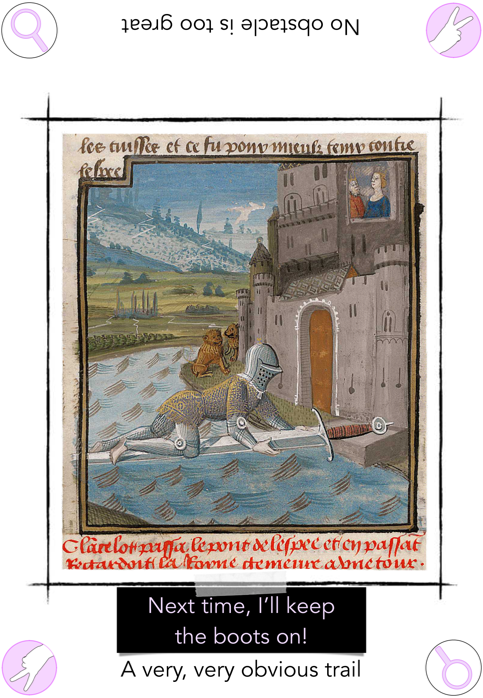 No obstacle is too great
les cuisses et ce fu pour mieulx tenir contre
lespee
Clãcelot passa le pont de lespee et en passãt
Regardoit la Royne a une tour.
Next time, I’ll keep
the boots on!
A very, very obvious trail